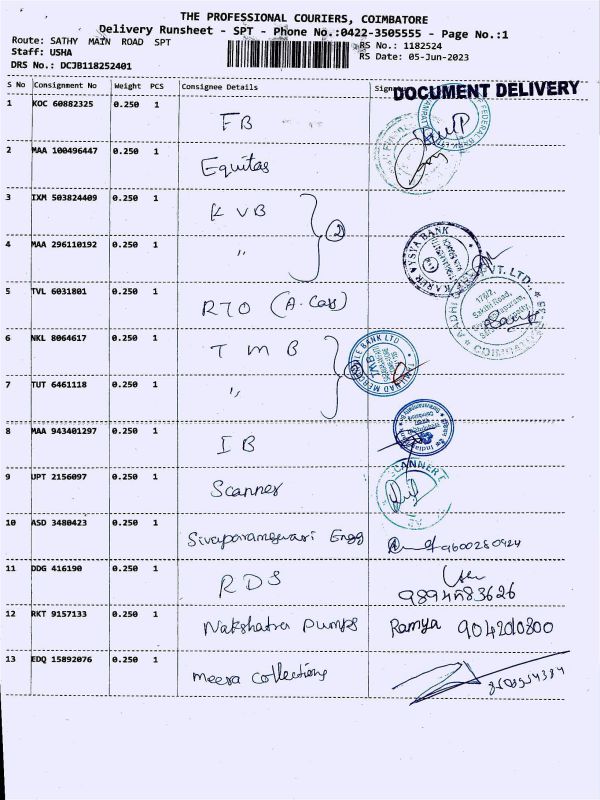 THE PROFESSIONAL COURIERS, COIMBATORE
Delivery Runsheet - SPT - Phone No.:0422-3505555 - Page No.:1
Route: SATHY MAIN ROAD SPT
RS No.: 1182524
Staff: USHA
RS Date: 05-Jun-2023
DRS No.: DCJB118252401
S No Consignment No Weight PCS Consignee Details
DOCUMENT DELIVERY
1 KOC 60882325 0.250 1 FB
2 MAA 100496447 0.250 1 Equitas
3 IXM 503824409 0.250 1 KVB
2
4 MAA 296110192 0.250 1 "
KARUR VYSYA BANK
5 TVL 6031801 0.250 1 RTO (A. Cas)
6 NKL 8064617 0.250 1 TMB
7 TUT 6461118 0.250 1 "
8 MAA 943401297 0.250 1 IB
9 UPT 2156097 0.250 1 Scanner
10 ASD 3480423 0.250 1 Sivaparameswari Engg 9600280424
11 DDG 416190 0.250 1 RDS
12 RKT 9157133 0.250 1 Nakshatra Pumps Ramya
13 EDQ 15892076 0.250 1 Meera Collections